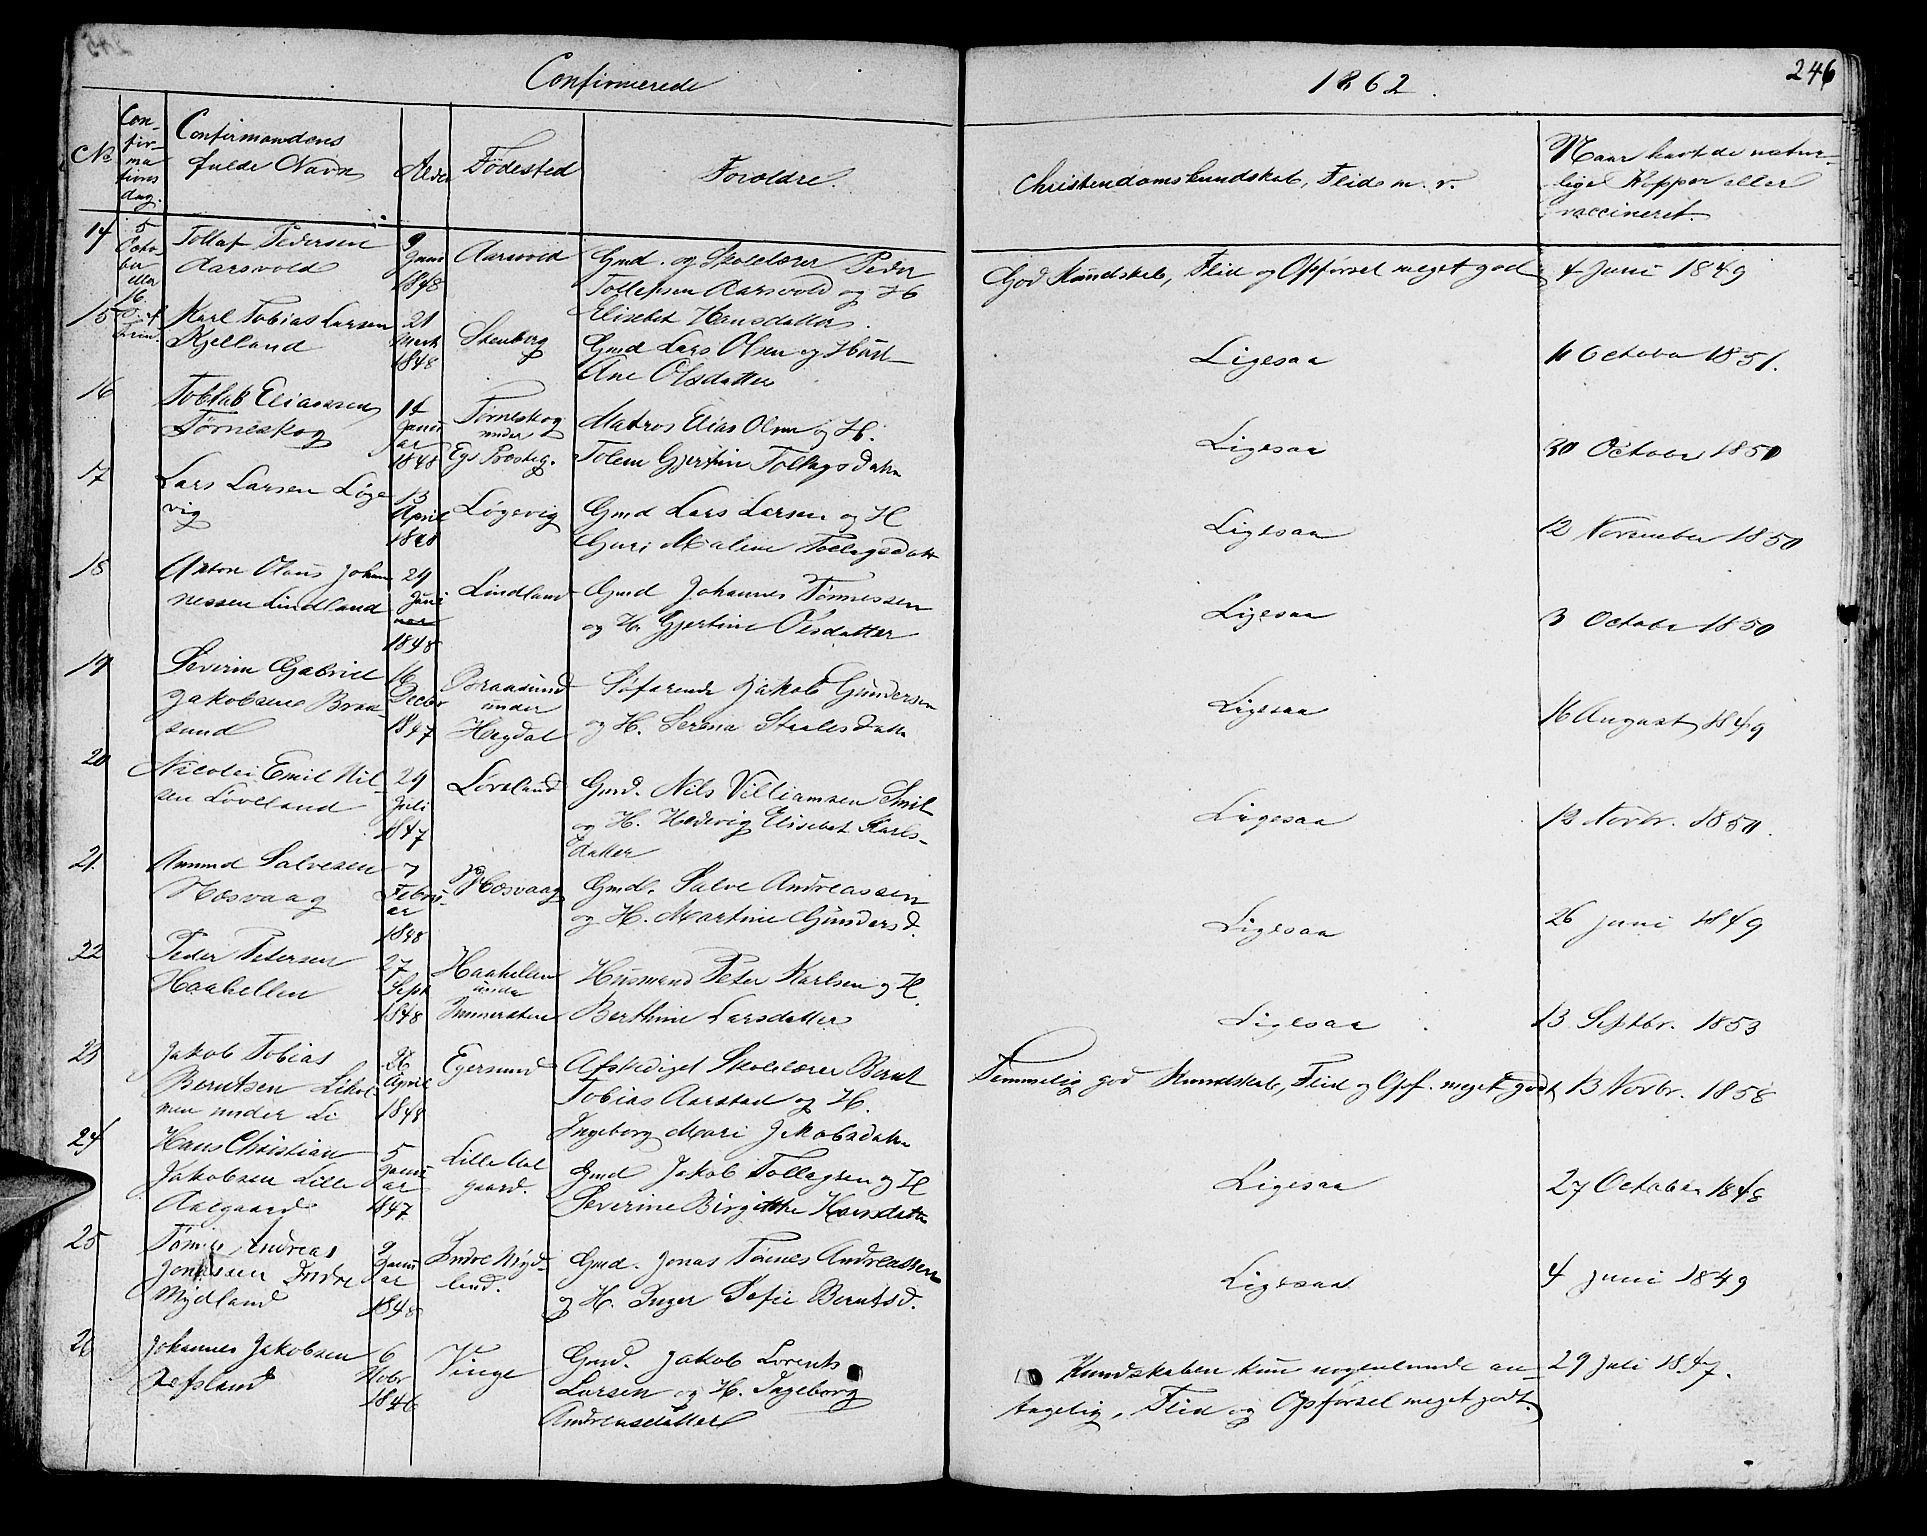 Confirmerede
1862.
246
No
Con-
fir-
ma
tions
dag.
Confirmandens
fulde Navn
Alder
Fødested
Foroldre.
Christendomskundskab, Flid m. v.
Naar havt de natur-
lige Kopper eller
vaccineret.
14
5
Octo
ber
eller
16
Trin.
Tollaf Pedersen
Aarsvold
9
Janu
1848
Aarsvold
Gmd. og Skolelærer Peder
Tollefsen Aarsvold og H
Elisebet Hansdatter.
God Kundskab, Flid og Opførsel meget god
4 Juni 1849
15
Karl Tobias Larsen
Kjelland
21
Marts
1848
Stenberg
Gmd Lars Olsen og Hust
Ane Olsdatter
Ligesaa
11 October 1851.
16
Tollak Eliassen
Tørneskog
14
Janu
ar
1848
Tørneskog
under
Egs Præsteg.
Matros Elias Olsen og H.
Tolene Gjertine Tollagsdatter
Ligesaa
30 October 1850
17
Lars Larsen Løge
vig
13
April
1848
Løgevig
Gmd Lars Larsen og H
Guri Malene Tollagsdatt
Ligesaa
12 November 1850
18
Anton Olaus Johan
nessen Lindland
29
Juni
1848
Lindland
Gmd Johannes Tønnessen
og H. Gjertine Olsdatter
Ligesaa
3 October 1850
19
Severin Gabriel
Jakobsen Braa-
sund
16
Decbr
1847
Braasund
under
Høgdal
Søfarende Jakob Gundersen
og H. Serena Staalesdatter
Ligesaa
16 August 1849
20
Nicolai Emil Nil-
sen Løveland
29
Juli
1847
Løveland
Gmd. Nils Villiamsen Smit
og H. Hedevig Elisebet Karls-
datter
Ligesaa
12 Novbr. 1850.
21.
Amund Salvesen
Næsvaag
7
Febru-
ar
1848
Næsvaag
Gmd. Salve Andreassen
og H. Martine Gundersd.
Ligesaa
26 Juni 1849
22
Peder Petersen
Haahellen
27
Sept
1848
Haahellen
under
Immersten
Husmand Peter Karlsen og H.
Berthine Larsdatter
Ligesaa
13 Septbr. 1853
23
Jakob Tobias
Berntsen Likol
men under Li
26
April
1848
Egersund
Afskediget Skolelærer Bernt
Tobias Aarstad og H.
Ingeborg Mari Jakobsdatter
Temmelig god Kundskab, Flid og Opf. meget godt
13 Novbr. 1858
24
Hans Christian
Jakobsen Lille
Aalgaard
5
Janu
ar
1847
Lille Aal
gaard.
Gmd Jakob Tollagsen og H
Severine Birgitthe Hansdatter
Ligesaa
27 October 1848
25
Tønnes Andreas
Jonassen Indre
Mydland
9
Janu
ar
1848
Indre Myd-
land.
Gmd. Jonas Tønnes Andreassen
og H. Inger Sofie Berntsd.
Ligesaa
4 Juni 1849
26
Johannes Jakobsen
Refsland
6
Nobr
1846
Vinge
Gmd. Jakob Lorents
Larsen og H. Ingeborg
Andreasdatter
Kundskaben kun nogenlunde an-
tagelig, Flid og Opførsel meget godt.
29 Juli 1847.